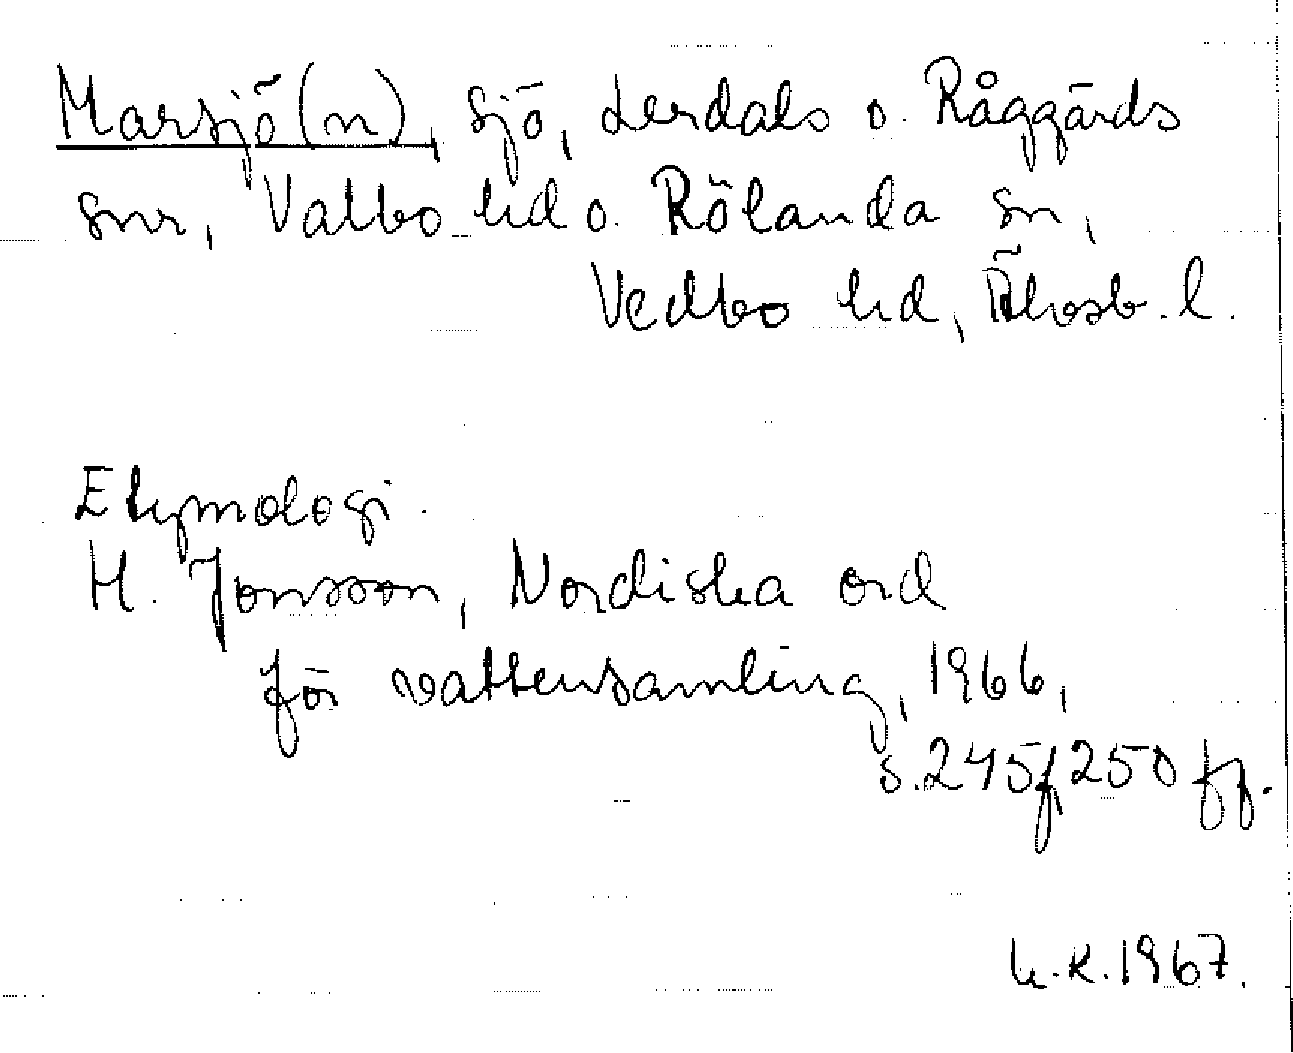 Marsjö(n), sjö, Lerdals o. Råggärds
snr, Valbo hd o. Rölanda sn,
Vedbo hd, Älvsb. l.
Etymologi.
H. Jonsson, Nordiska ord
för vattensamling, 1966,
s. 245f, 250 ff.
L.K. 1967.